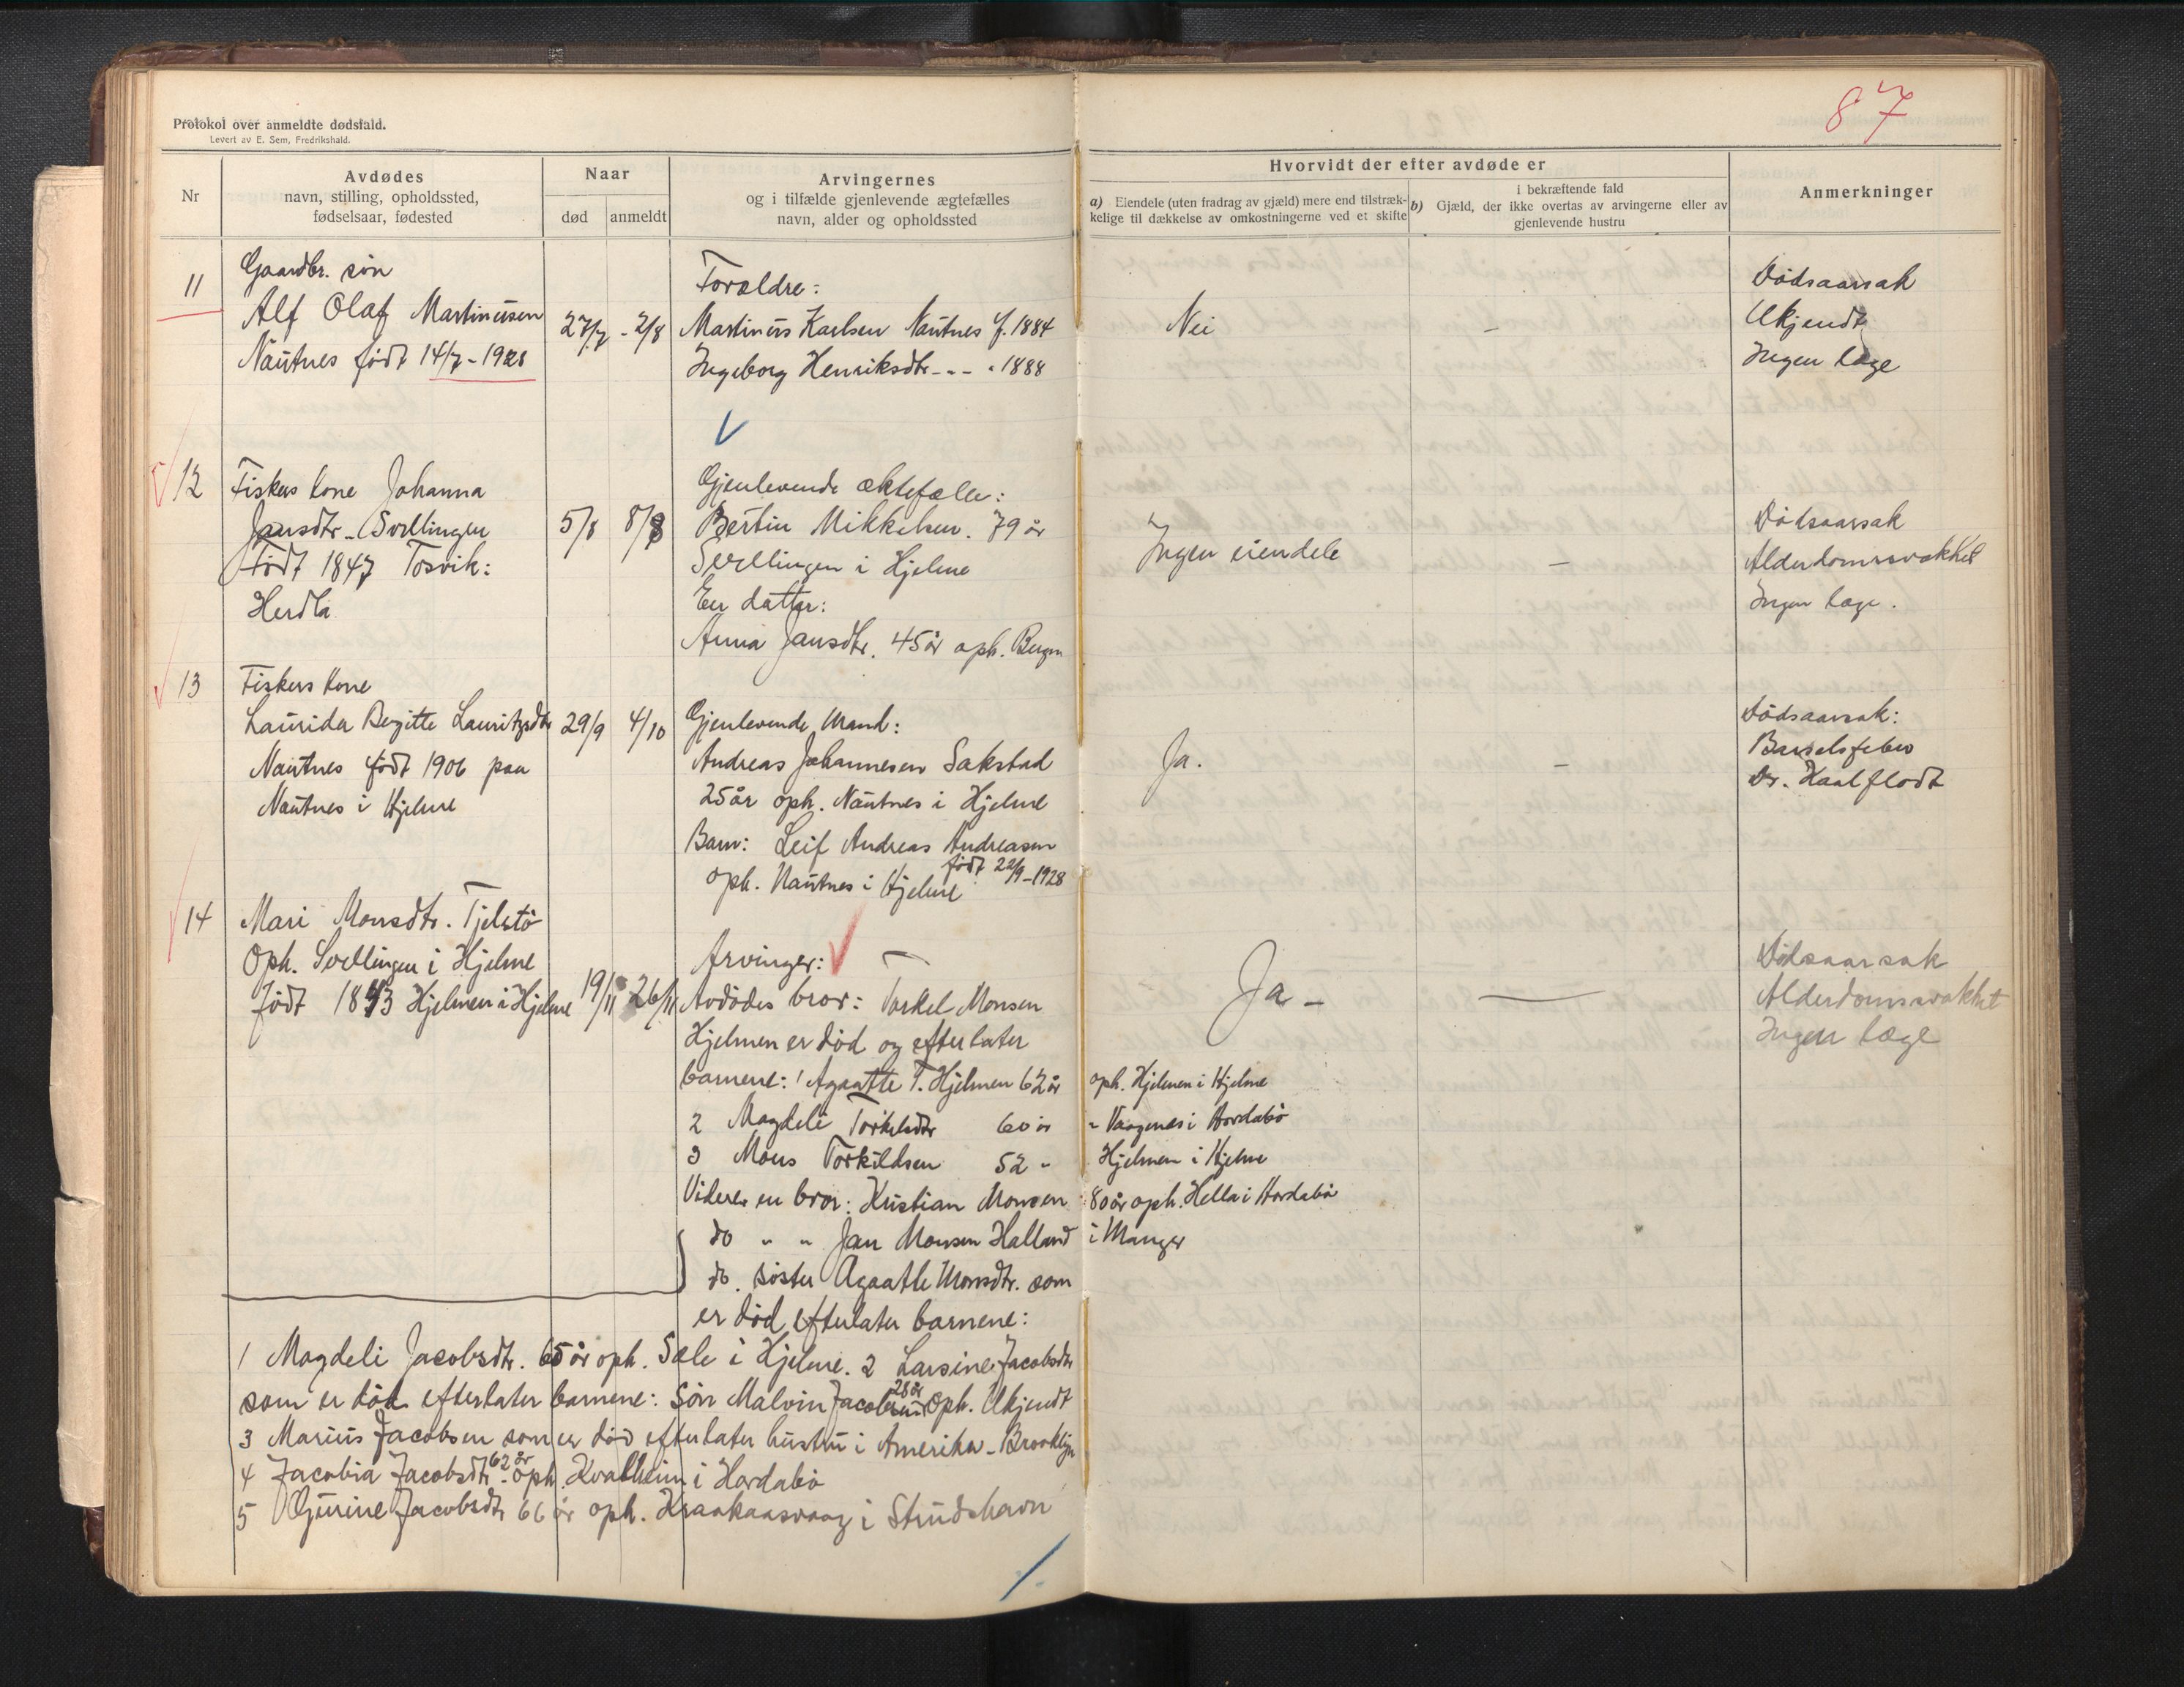 Protokol over anmeldte dødsfald.
Levert av E. Sem, Fredrikshald.
87
Nr
Avdødes
navn, stilling, opholdssted,
fødselsaar, fødested
Naar
død
anmeldt
Arvingernes
og i tilfælde gjenlevende ægtefælles
navn, alder og opholdssted
Hvorvidt der efter avdøde er
a) Eiendele (uten fradrag av gjæld) mere end tilstræk-
kelige til dækkelse av omkostningerne ved et skifte
i bekræftende fald
b) Gjæld, der ikke overtas av arvingerne eller av
gjenlevende hustru
Anmerkninger
11
Gaardbr. søn
Alf Olaf Martinusen
Nautnes født 14/7-1928
27/7 - 2/8
Forældre:
Martinus Karlsen Nautnes f. 1884
Ingeborg Henriksdtr - - - 1888
Nei
-
Dødsaarsak
Ukjendt
Ingen læge
12
Fiskers kone Johanna
Jansdtr. Svellingen
Født 1847 Tosvik:
Herdla
5/8 8/8
Gjenlevende æktefælle:
Bertin Mikkelsen. 79 år
Svellingen i Hjelme
En datter:
Anna Jansdtr. 45 år oph. Bergen
Ingen eiendele
-
Dødsaarsak
Alderdomssvakhet
Ingen læge.
13
Fiskers kone
Laurida Bergitte Lauritzsdtr
Nautnes født 1906 paa
Nautnes i Hjelme
29/9 4/10
Gjenlevende Mand:
Andreas Johannesen Sakstad
25 år oph. Nautnes i Hjelme
Barn: Leif Andreas Andreasen
født 22/9-1928
oph. Nautnes i Hjelme
Ja.
-
Dødsaarsak:
Barselsfeber
Dr. Kaalflodt
14
Mari Monsdtr. Tjelstø
Oph. Svellingen i Hjelme
født 1843 Hjelmen i Hjelme
19/11 26/11
Arvinger:
Avdødes bror: Torkel Monsen
Hjelmen er død og efterlater
barnene: 1 Agaatte T. Hjelmen 62 år oph. Hjelmen i Hjelme
2 Magdeli Torkelsdtr 60 år - Vaagenes i Hordabø
3 Mons Torkildsen 52 - Hjelmen i Hjelme
Videre en bror: Kristian Monsen 80 år oph. Hella i Hordabø
do " " Jan Monsen Halland i Manger
do. søster Agaatte Monsdtr. som
er død efterlater barnene:
Ja -
-
Dødsaarsak
Alderdomssvakhet
Ingen læge
1 Magdeli Jacobsdtr. 65 år oph. Sæle i Hjelme. 2 Larsine Jacobsdtr
som er død efterlater barnene: Søn Malvin Jacobsen 28 år Oph. Ukjendt
3 Marius Jacobsen som er død efterlater hustru i Amerika - Brooklyn
4 Jacobia Jacobsdtr 62 år. oph. Kvalheim i Hordabø
5 Gjurine Jacobsdtr 66 år oph. Kraakaasvaag i Strudshavn